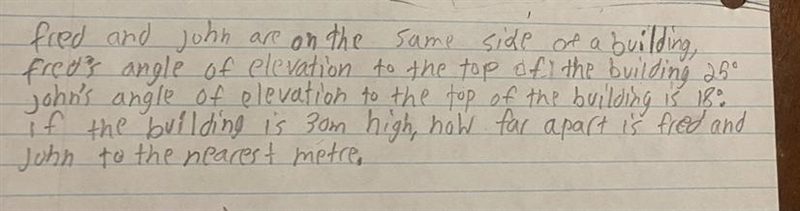 fred and john are on the same side of a building,
fred's angle of elevation to the top of the building 25°
john's angle of elevation to the top of the building is 18°.
if the building is 30m high, how far apart is fred and
john to the nearest metre.